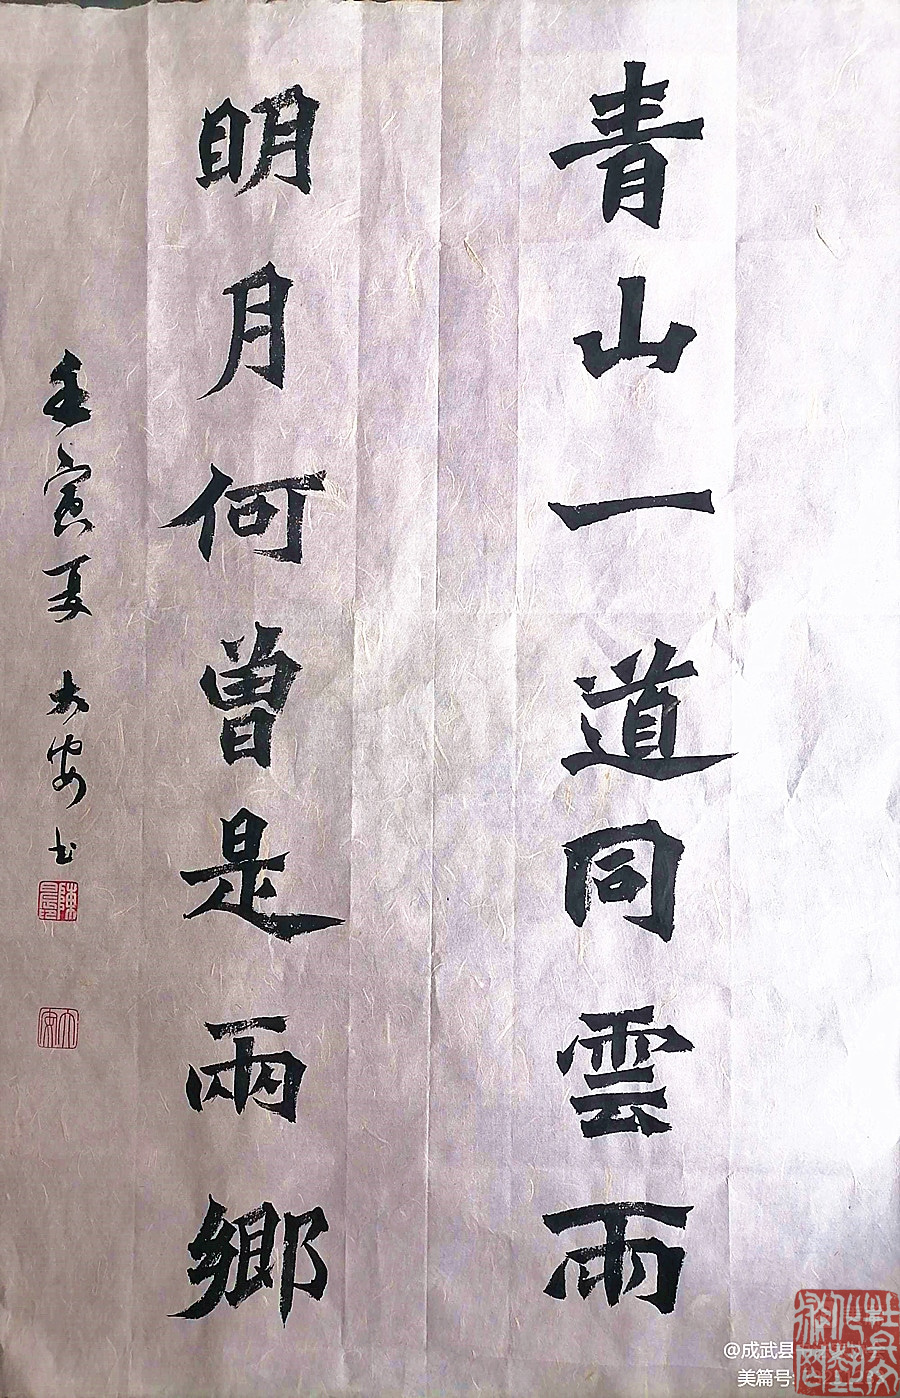 青山一道同雲雨
明月何曾是兩鄉
壬寅夏 大安书
陳
大安
@成武县
美篇号: